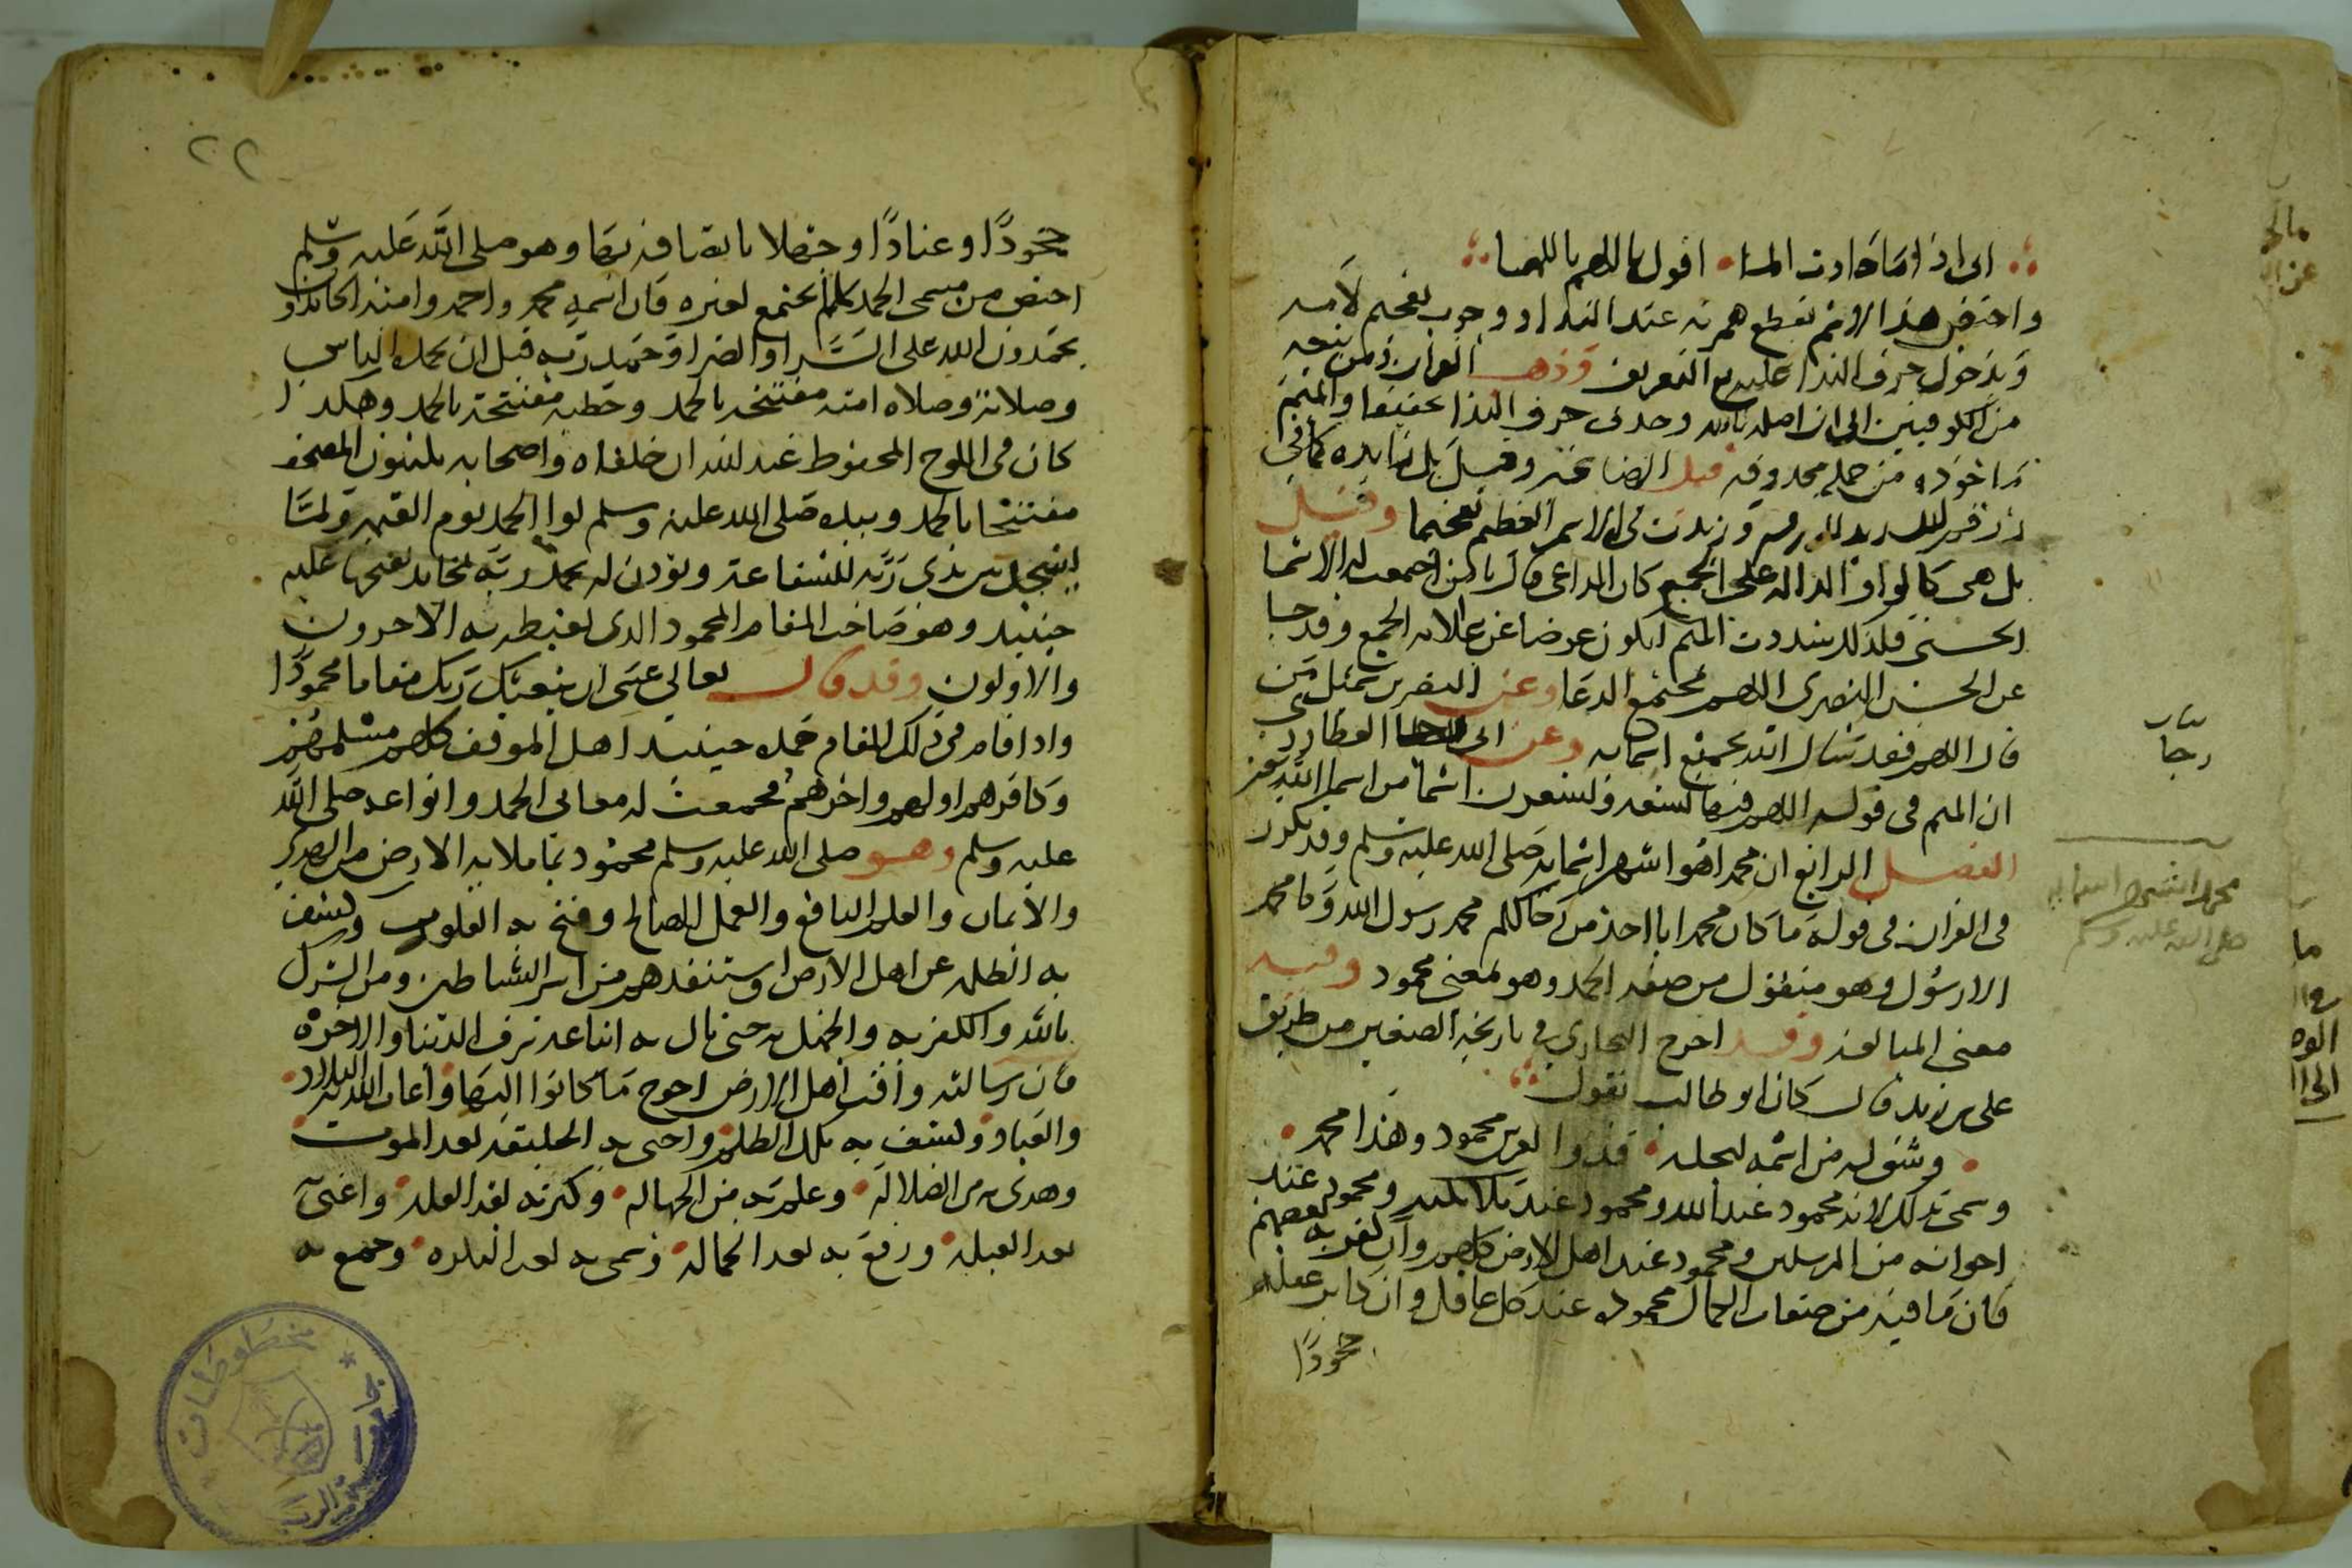 اني اذا ما حادث الما • اقول يا اللهم يا اللهما
واختص هذا الاسم بقطع همزته عند الندا ووجوب تفخيم لامه
وبدخول حرف الندا عليه مع التعريف وذهب الفرا ومن تبعه
من الكوفيين الى ان اصله يا الله وحذف حرف الندا تخفيفا والميم
ماخوذه من جملة محذوفه قيل امنا بخير وقيل بل زايده كما في
زرقم للشديد الزرقه وزيدت في الاسم العظيم تفخيما وقيل
بل هي كالواو الداله على الجمع كان الداعي قال يا من اجتمعت له الاسما
الحسنى فلذلك شددت الميم لتكون عوضا عن علامه الجمع وقد جا
عن الحسن البصري اللهم مجتمع الدعا وعن النضر بن شميل من
قال اللهم فقد سال الله بجميع اسمايه وعن ابي رجا العطاردي
ان الميم في قوله اللهم فيها تسعه وتسعون اسما من اسما الله عز
الفصل الرابع ان محمدا هو اشهر اسمايه صلى الله عليه وسلم وقد تكرر
في القران في قوله ما كان محمد ابا احد من رجالكم محمد رسول الله وما محمد
الا رسول وهو منقول من صفه الحمد وهو بمعنى محمود وفيه
معنى المبالغه وقد اخرج البخاري في تاريخه الصغير من طريق
علي بن زيد قال كان ابو طالب يقول
• وشق له من اسمه ليجله • فذو العرش محمود وهذا محمد •
وسمي بذلك لانه محمود عند الله ومحمود عند ملائكته ومحمود عند
اخوانه من المرسلين ومحمود عند اهل الارض كلهم وان كفر به بعضهم
فان ما فيه من صفات الكمال محموده عند كل عاقل وان كابر عقله
جحودا
رجا
محمد اشهر اسمايه
صلى الله عليه وسلم
٢٢
جحودا وعنادا وجهلا باتصافه بها وهو صلى الله عليه وسلم
اختص من مسمى الحمد بما لم يجتمع لغيره فان اسمه محمد واحمد وامته الحامدون
يحمدون الله على السرا والضرا وحمد ربه قبل ان يحمده الناس
وصلاته وصلاه امته مفتتحه بالحمد وخطبه مفتتحة بالحمد وهكذا
كان في اللوح المحفوظ عند الله ان خلفاه واصحابه يكتبون المصحف
مفتتحا بالحمد وبيده صلى الله عليه وسلم لوا الحمد يوم القيمه ولما
يسجد بين يدي ربه للشفاعة ويوذن له يحمد ربه بمحامد يفتحها عليه
حينيذ وهو صاحب المقام المحمود الذي يغبطه به الاخرون
والاولون وقد قال تعالى عسى ان يبعثك ربك مقاما محمودا
واذا قام في ذلك المقام حمده حينيذ اهل الموقف كلهم مسلمهم
وكافرهم اولهم واخرهم فجمعت له معاني الحمد وانواعه صلى الله
عليه وسلم وهو صلى الله عليه وسلم محمود بما ملا به الارض من الهدى
والايمان والعلم النافع والعمل الصالح وفتح به القلوب وكشف
به الظلمه عن اهل الارض واستنقذهم من اسر الشياطين ومن الشرك
بالله والكفر به والجهل به حتى نال به اتباعه شرف الدنيا والاخره
فان رسالته وافت اهل الارض احوج ما كانوا اليها واغاث الله به البلاد •
والعباد وكشف به تلك الظلم واحيى به الخليقه بعد الموت •
وهدى به من الضلالة • وعلم به من الجهاله • وكثر به بعد القله • واغنى به
بعد العيله • ورفع به بعد الخماله • وسمى به بعد النكره • وجمع به
مخطوطات